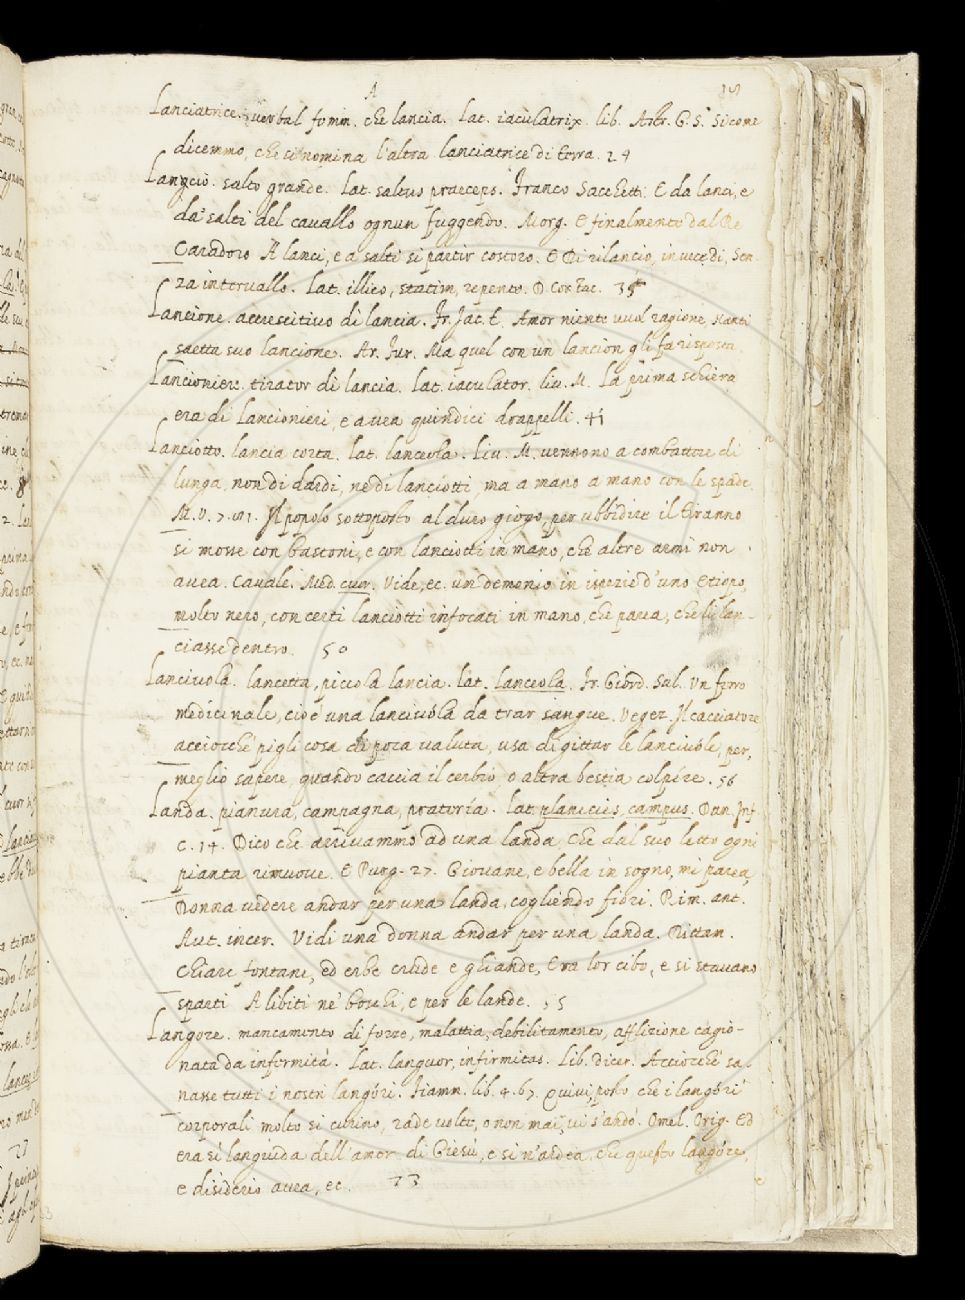 A
Lanciatrice. verbal femm. che lancia. Lat. iaculatrix. lib. Astr. G. S. Sicome
dicemmo, che si nomina l'altra lanciatrice di terra. 24
Lancio. salto grande. Lat. saltus praeceps. Franco Sacchetti. E da lanci, e
da salti del cavallo ognun fuggendo. Morg. E finalmente dal Re
Caradoro A lanci, e a salti si partir costoro. E Di rilancio, in vece di, Sen-
za intervallo. Lat. illico, statim, repente. 35
Lancione. accrescitivo di lancia. Fr. Jac. t. Amor niente vuol ragione, Nanti
saetta suo lancione. Ar. Fur. Ma quel con un lancion gli fa risposta
Lancioniere. tirator di lancia. Lat. iaculator. Liv. M. La prima schiera
era di Lancionieri, e avea quindici drappelli. 41
Lanciotto. lancia corta. Lat. lanceola. Liv. M. vennono a combattere di
lunga, non di dardi, ne di lanciotti, ma a mano a mano con le spade.
M. V. 7. Il popolo sottoposto al duro giogo, per ubbidire il tiranno
si mosse con bastoni, e con lanciotti in mano, che altre armi non
avea. Cavalc. Med. cuor. Vide, ec. un demonio in ispezie d'uno Etiopo,
molto nero, con certi lanciotti infocati in mano, che parea, che li lan-
ciasse dentro. 50
Lanciuola. lancetta, piccola lancia. Lat. lanceola. Fr. Giord. Sal. Un ferro
medicinale, cioè una lanciuola da trar sangue. Vegez. Il cacciatore
acciocché pigli cosa di poca valuta, usa di gittar le lanciuole, per,
meglio sapere, quando caccia il cerbio o altra bestia colpire. 56
Landa. pianura, campagna, prateria. Lat. planicies, campus. Dan. Inf
C. 14. Dico che arrivammo ad una landa, Che dal suo letto ogni
pianta rimuove. E Purg. 27. Giovane, e bella in sogno, mi parea,
Donna vedere andar per una landa, cogliendo fiori. Rim. ant.
Aut. incer. Vidi una donna andar per una landa. Dittam.
Chiare fontane, ed erbe crude e ghiande, Era lor cibo, e si stavano
sparti A libiti ne' boschi, e per le lande.
Langore. mancamento di forze, malattia, debilitamento, afflizione cagio-
nata da infermità. Lat. languor, infirmitas. Lib. dicer. Acciocché sa-
nasse tutti i nostri langóri. Fiamm. lib. 4. 67. Quivi, posto che i langóri
corporali molto si curino, rade volte, o non mai, vi s'andó. Omel. Orig. Ed
era sí languida dell'amor di Giesú, e si n'ardea, che questo langóre,
e disiderio avea, ec. 73